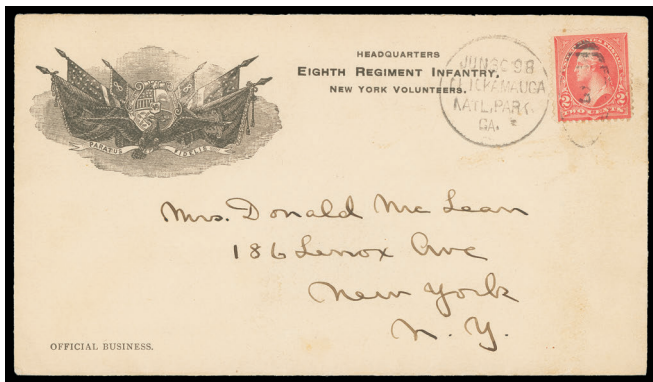 HEADQUARTERS
EIGHTH REGIMENT INFANTRY,
NEW YORK VOLUNTEERS.
PARATUS FIDELIS
JUN 30 98
CHICKAMAUGA
NATL. PARK
GA.
2 2
TWO CENTS
Mrs. Donald Mc Lean
186 Lenox Ave
New York
N. Y.
OFFICIAL BUSINESS.